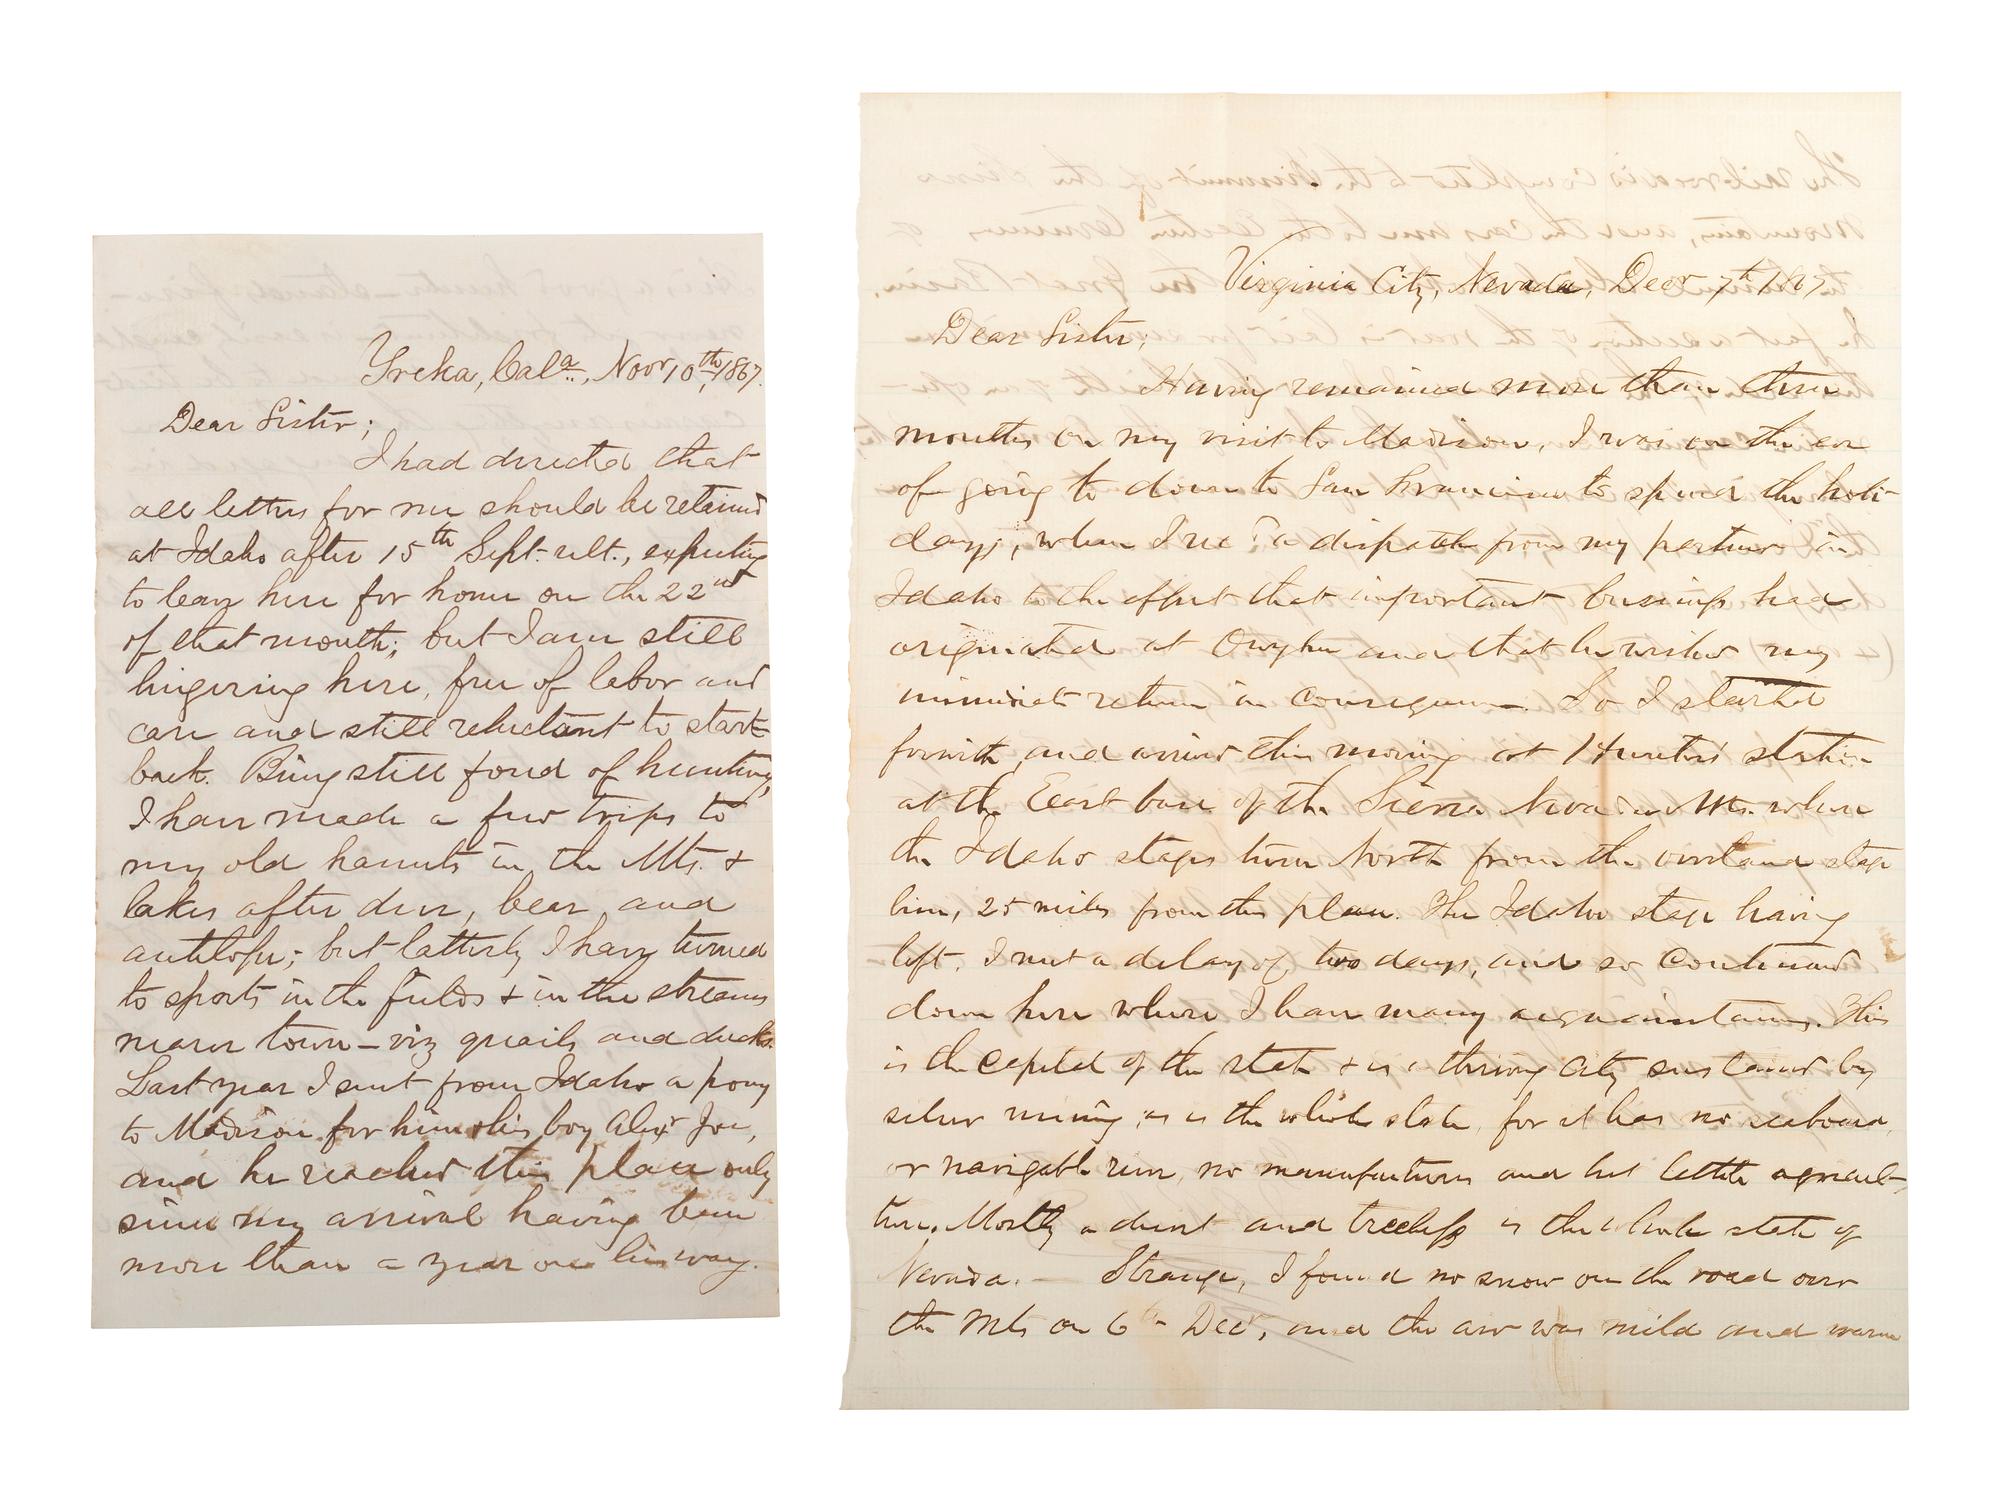 Yreka, Cala., Novr 10th, 1867.
Dear Sister;
I had directed that
all letters for me should be retained
at Idaho after 15th Sept. ult., expecting
to leave here for home on the 22nd
of that month; but I am still
lingering here, free of labor and
care and still reluctant to start
back. Being still fond of hunting,
I have made a few trips to
my old haunts in the Mts. &
lakes after deer, bear, and
antelope; but latterly I have turned
to sports in the fields & in the streams
nearer town – viz quails and ducks.
Last year I sent from Idaho a pony
to Madison for him & his boy Alexr Joe,
and he reached this place only
since my arrival having been
more than a year on his way.
Virginia City, Nevada, Decr 7th 1867
Dear Sister,
Having remained more than three
months on my visit to Madison, I was on the eve
of going to down to San Francisco to spend the holi-
days, when I rec'd a dispatch from my partner in
Idaho to the effect that important business had
originated at Owyhee and that he wished my
immediate return in consequence. So I started
forwith, and arrived this morning at Hunter's station
at the East base of the Sierra Nevada Mts. where
the Idaho stages turn North from the overland stage
line, 25 miles from this place. The Idaho stage having
left, I met a delay of two days, and so continued
down here where I have many acquaintances. This
is the capital of the state & is a thriving city sustained by
silver mining, as is the whole state, for it has no seaboard,
or navigable river, no manufactures and but little agricul-
ture. Mostly a desert and treeless is the whole state of
Nevada. – Strange, I found no snow on the road over
the Mts on 6th Decr, and the air was mild and warm